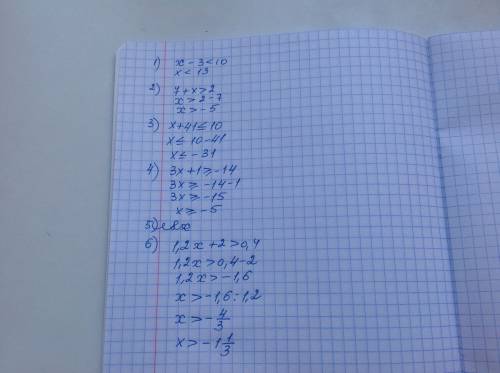 1) x - 3 < 10
x < 13
2) 7 + x > 2
x > 2 - 7
x > - 5
3) x + 41 ≤ 10
x ≤ 10 - 41
x ≤ - 31
4) 3x + 1 ≥ -14
3x ≥ -14 - 1
3x ≥ -15
x ≥ -5
5)
6) 1,2x + 2 > 0,4
1,2x > 0,4 - 2
1,2x > -1,6
x > -1,6 : 1,2
x > - 4/3
x > - 1 1/3